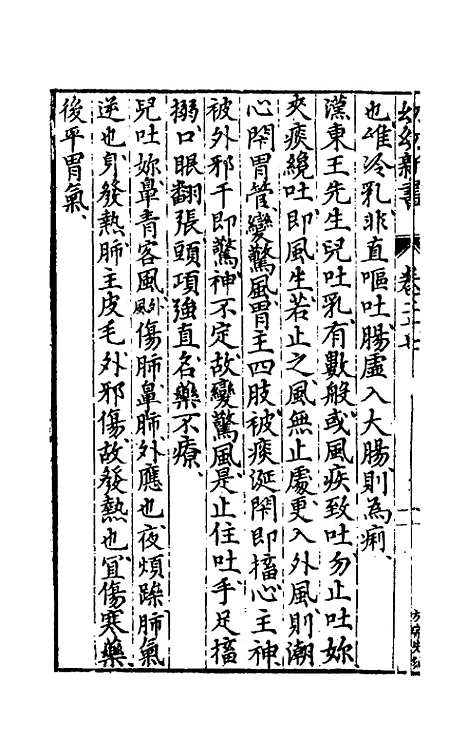 幼幼新書 卷二十七
也雖冷乳非直嘔吐腸虛入大腸則為痢
漢東王先生兒吐乳有數般或風疾致吐勿止吐妳
夾痰纔吐即風生若止之風無止處更入外風則潮
心閉胃管變驚風胃主四肢被痰涎閉即搐心主神
被外邪干即驚神不定故變驚風是止住吐手足搐
搦口眼翻張頭項強直名藥不療
兒吐妳鼻青客風外風傷肺鼻肺外應也夜煩躁肺氣
逆也身發熱肺主皮毛外邪傷故發熱也宜傷寒藥
後平胃氣